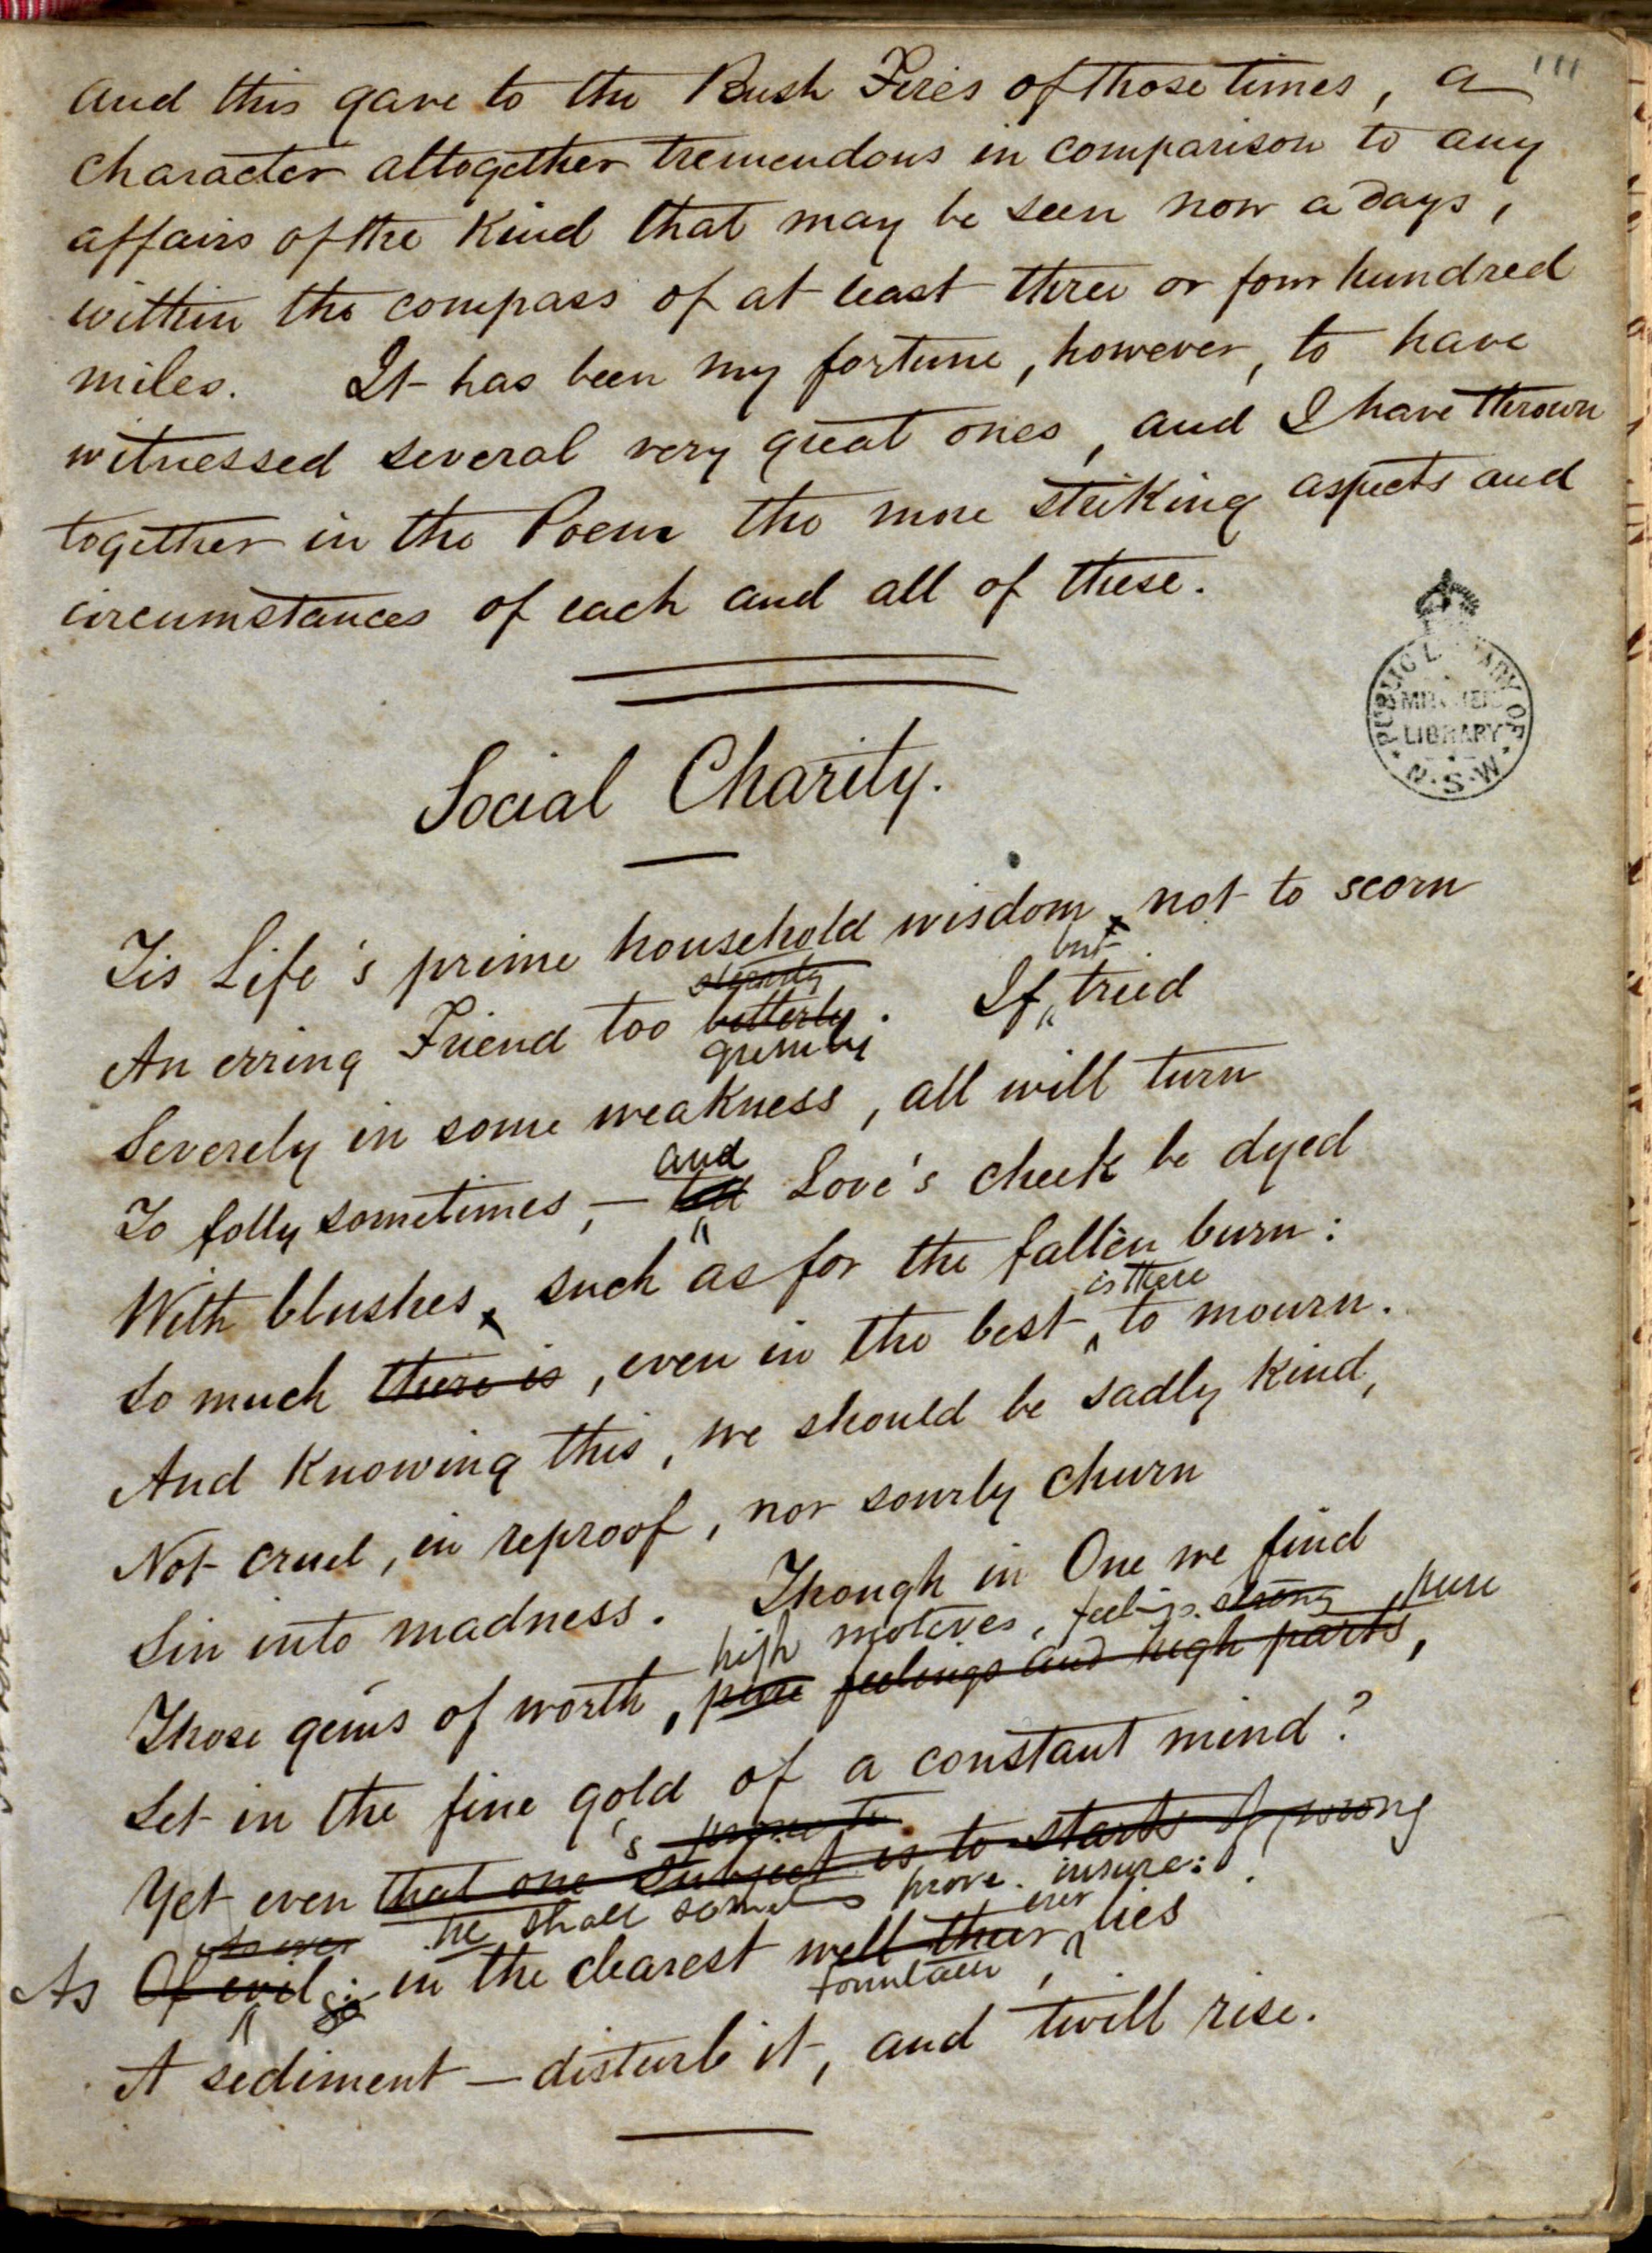 111
and this gave to the Bush Fires of those times, a
character altogether tremendous in comparison to any
affairs of the Kind that may be seen now a days,
within the compass of at least three or four hundred
miles. It has been my fortune, however, to have
witnessed several very great ones, and I have thrown
together in the Poem the more striking aspects and
circumstances of each and all of these.
PUBLIC LIBRARY OF
MITCHELL
LIBRARY
N.S.W.
Social Charity.
Tis Life's prime household wisdom, not to scorn
but
An erring Friend too bitterly. If tried
grimly
Severely in some weakness, all will turn
and
To folly sometimes,— Love's cheek be dyed
With blushes, such as for the fallen burn:
is there
So much there is, even in the best to mourn.
And Knowing this, we should be sadly kind,
Not cruel, in reproof, nor sourly churn
Sin into madness. Though in One we find
high motives, feelings strong, pure
Those gems of worth, pure feelings and high parts,
Set in the fine gold of a constant mind?
's prone to
Yet even that one subject is to starts of wrong
he shall somet s prove insure:
As ever
ever
As Of evil; so in the clearest well their lies
fountain,
A sediment — disturb it, and twill rise.